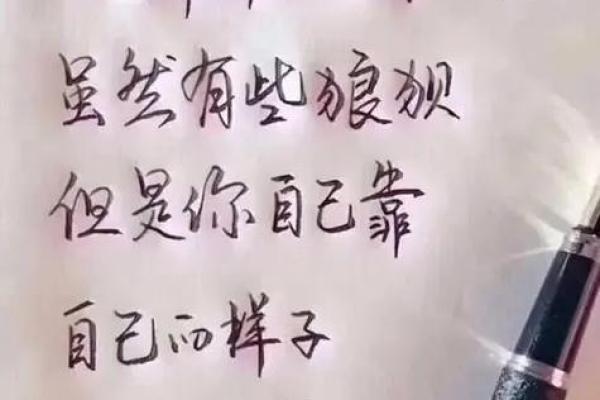 虽然有些狼狈
但是你自己靠
自己的样子